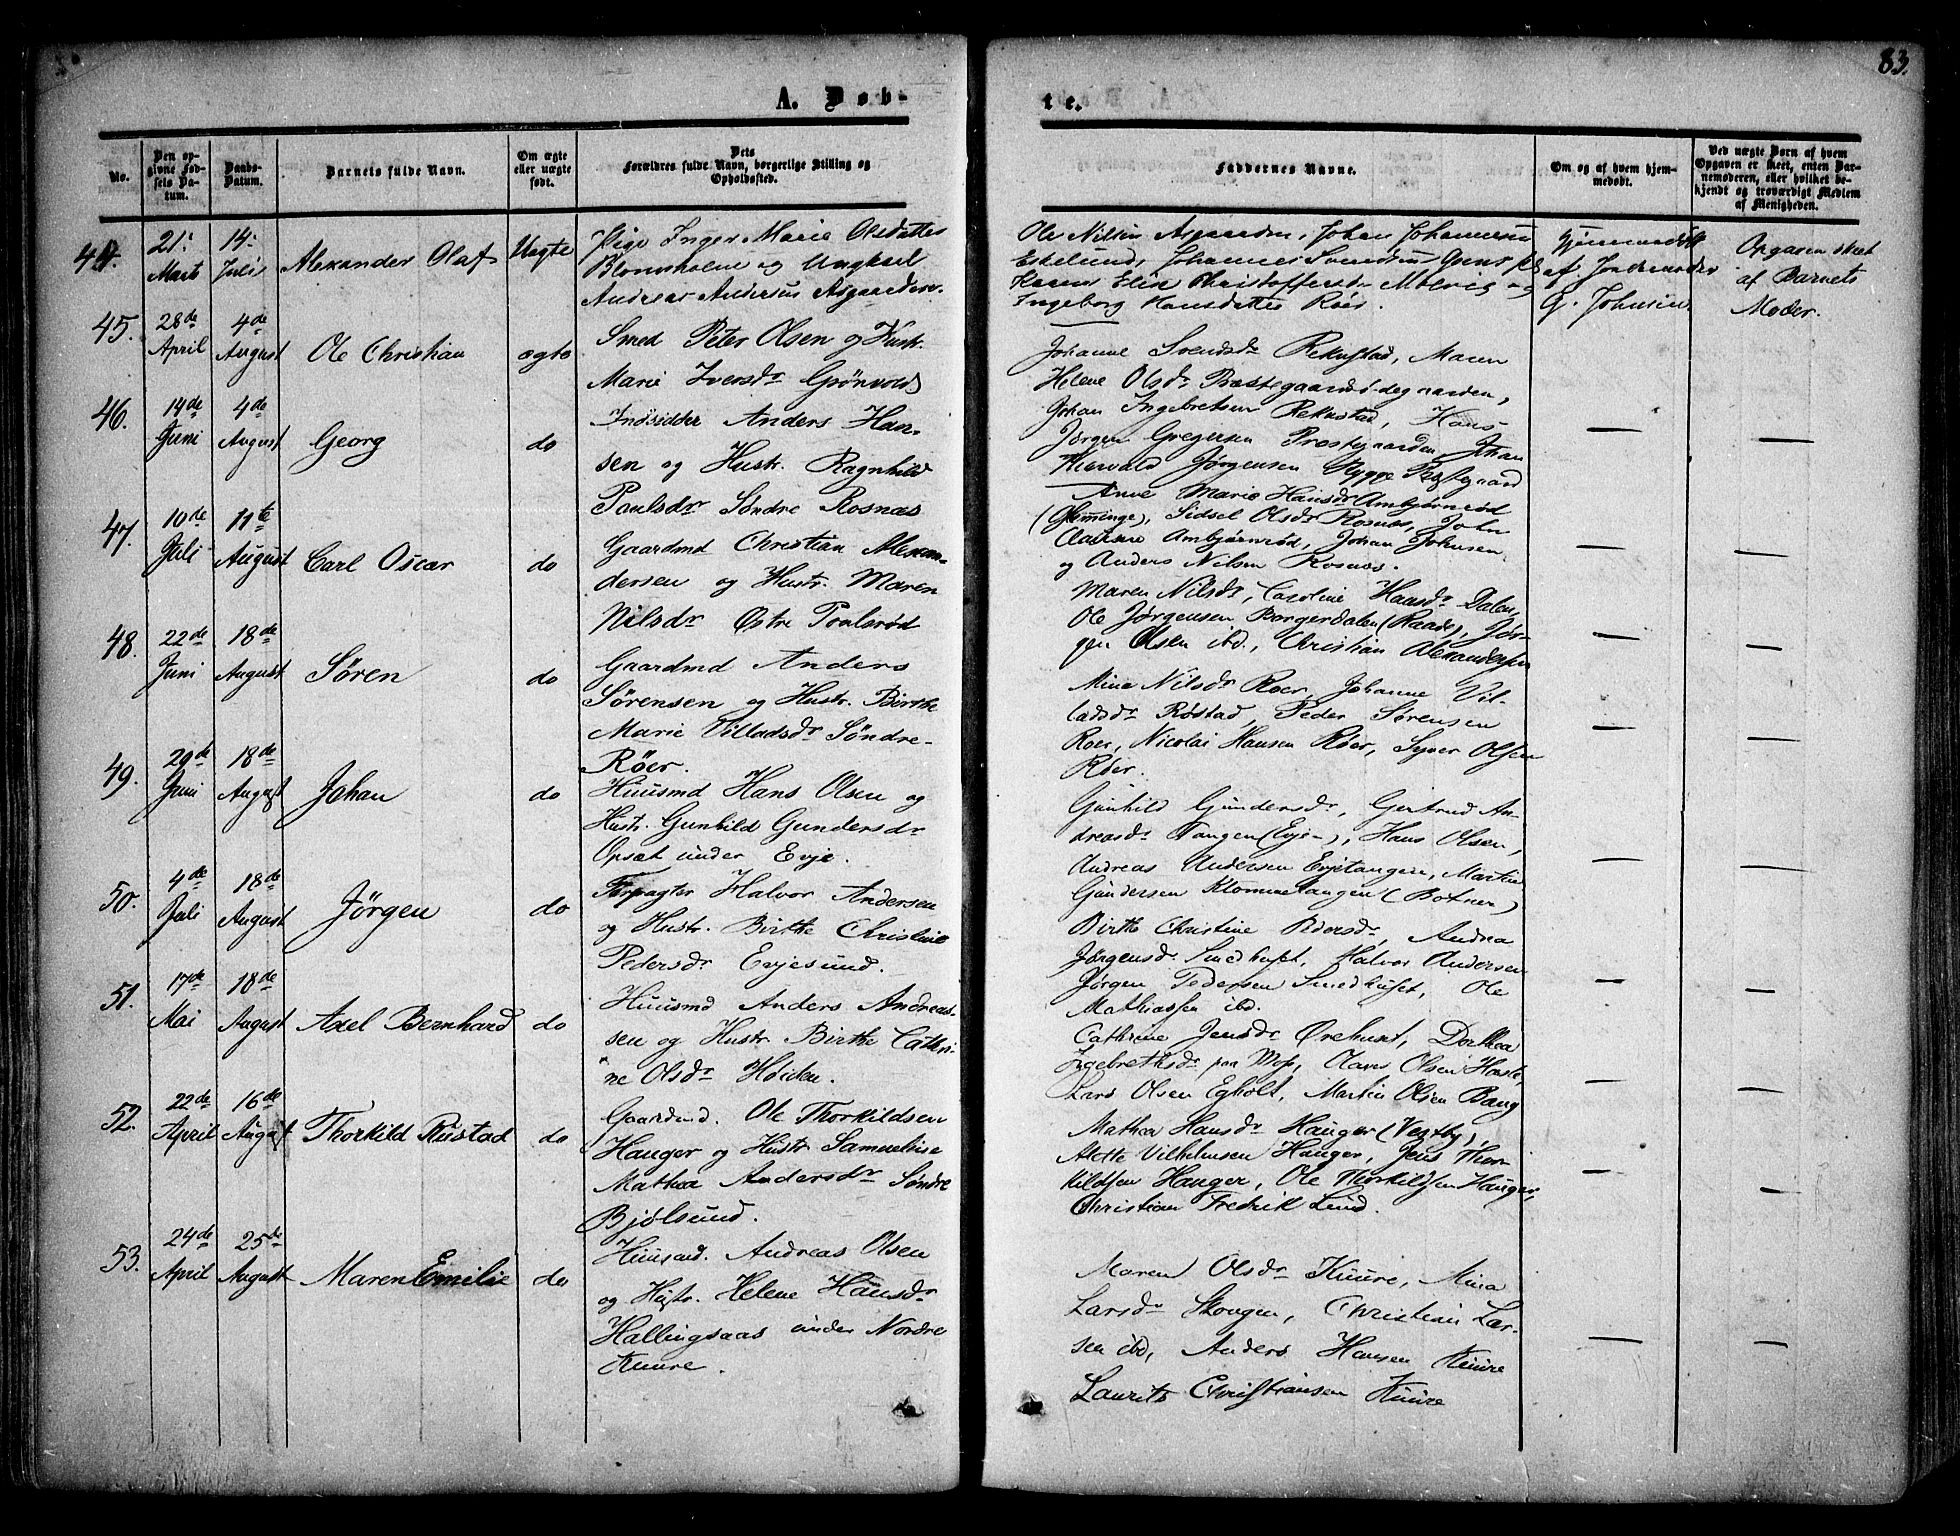 83.
A. Døb-
te.
No.
Den op-
givne Fød-
sels Da-
tum.
Daabs-
Datum.
Barnets fulde Navn.
Om ægte
eller uægte
født.
Dets
Forældres fulde Navn, borgerlige Stilling og
Opholdssted.
Faddernes Navne.
Om og af hvem hjem-
medøbt.
Ved uægte Børn af hvem
Opgaven er skeet, enten Bar-
nemoderen, eller hvilket be-
kjendt og troværdigt Medlem
af Menigheden.
44.
21.
Marts
14.
Juli
Alexander Olaf
Uægte
Pige Inger Marie Olsdatter
Blomsholm og Ungkarl
Andreas Andersen Asgaarden.
Ole Nilsen Asgaarden, Johan Johannesen
Eskelund, Johannes Svendsen
Karen Elise Christoffersdr og
Ingeborg Hansdatter Röer.
Hjemmedöbt
af Jordemoder
G. Johnsen
Opgaven skeet
af Barnets
Moder.
45.
28de
April
4de
August
Ole Christian
ægte
Smed Peter Olsen og Hustr.
Marie Iversdr Grönvold
Johanne Svendsdr Rekustad, Maren
Helene Olsdr Præstegaardsödegaarden,
Johan Ingebretsen Rekustad, Hans
Jørgen Gregersen Præstegaarden, Johan
Jørgensen Præstegaard
46.
14de
Juni
4de
August
Georg
do
Indsidder Anders Han-
sen og Hustr. Ragnhild
Paulsdr Søndre Rosnæs
Anne Marie Hansdr Ambjørnröd
(Glemminge), Sidsel Olsdr Rosnæs, John
Ambjørnröd, Johan Johnsen
og Anders Nilsen Rosnæs.
47.
10de
Juli
11te
August
Carl Oscar
do
Gaardmd Christian Alexan-
dersen og Hustr. Maren
Nilsdr Østre Poulsröd
Maren Nilsdr, Caroline Hansdr Dalen,
Ole Jørgensen Borgerdalen (Raade), Jör-
gen Olsen ibd., Christian Alexandersen
48.
22de
Juni
18de
August
Søren
do
Gaardmd Anders
Sørensen og Hustr. Birthe
Marie Villadsdr Søndre-
Röer.
Mina Nilsdr Roer, Johanne Vil-
ladsdr Röstad, Peder Sørensen
Roer, Nicolai Hansen Röer, Syver Olsen
Röer.
49.
29de
Juni
18de
August
Johan
do
Huusmd Hans Olsen og
Hustr. Gunhild Gundersdr
Opsæt under Evje.
Gunhild Gundersdr, Gertrud An-
dreasdr Tangen (Evje), Hans Olsen,
Andreas Andersen Evjetangen, Martin
Gundersen Klommetangen (Botner)
50.
4de
Juli
18de
August
Jörgen
do
Forpagter Halvor Andersen
og Hustr. Birthe Christine
Pedersdr Evjesund.
Birthe Christine Pedersdr, Andrea
Jørgensdr Smedhuset, Halvor Andersen
Jørgen Pedersen Smedhuset, Ole
Mathiassen ibd.
51.
17de
Mai
18de
August
Axel Bernhard
do
Huusmd Anders Andreas-
sen og Hustr Birthe Cathri-
ne Olsdr Höiden.
Cathrine Jensdr Ørehuset, Dorthea
Ingebrethsdr paa Moss, Olaves Olsen
Lars Olsen Egholt, Martin Olsen Bang
52.
22de
April
16de
August
Thorkild Rustad
do
Gaardmd. Ole Thorkildsen
Hauger og Hustr Samueline
Mathea Andersdr Søndre
Bjölsund.
Mathea Hansdr Hauger (Vestby),
Alette Vilhelmsen Hauger, Jens Thor-
kildsen Hauger, Ole Thorkildsen Hauger,
Christian Fredrik Lund.
53.
24de
April
25de
August
Maren Emilie
do
Huusmd. Andreas Olsen
og Hustr. Helene Hansdr
Hallingsaas under Nordre
Kuure.
Maren Olsdr Kuure, Mina
Larsdr Skougen, Christian Lar-
sen ibd, Anders Hansen Kuure
Laurits Christiansen Kuure